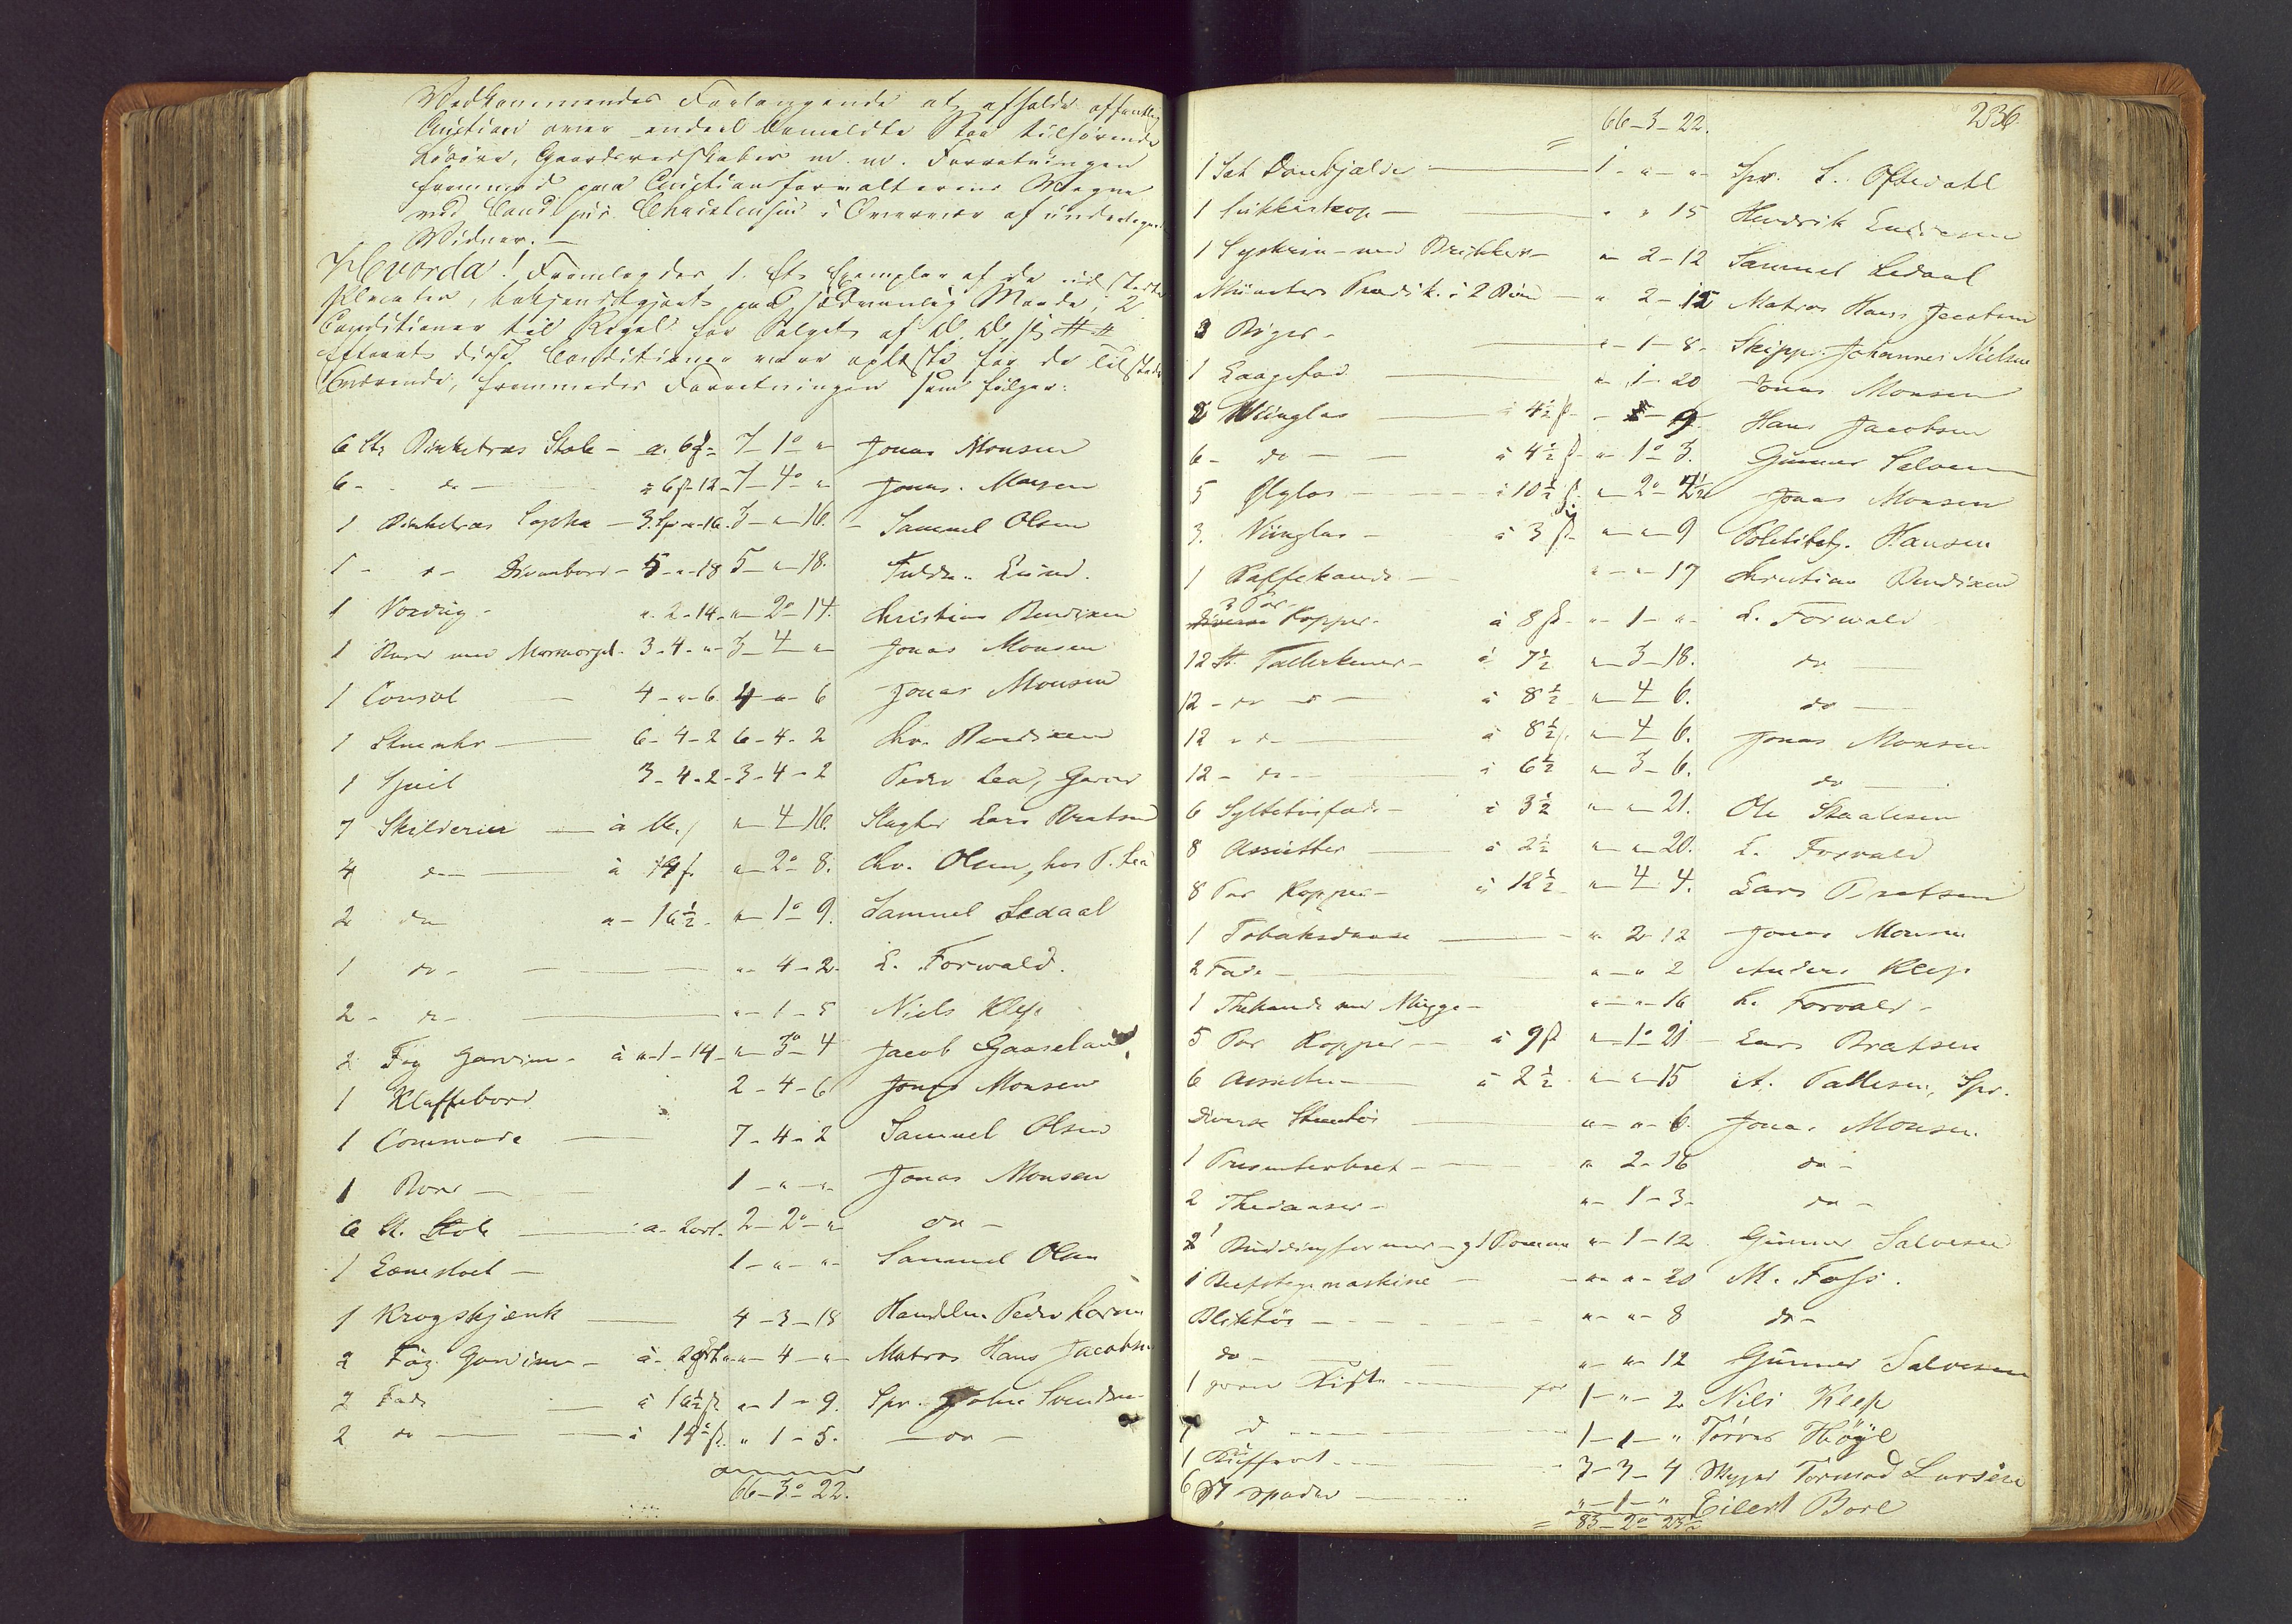 Vedkommendes Forlangende at afholde offentlig
Auction over endeel bemeldte Boe tilhørende
Løsøre, Gaardsredskaber m. m. Forretningen
fremmed paa Auctionsforvalterens Vegne
ved Cand. jur. Christensen i Overvær af undertegnede
Vidner. —
Hvorda! Fremlagdes 1. Et Exemplar af de udstædte
Placater, bekjendtgjort paa sædvanlig Maade, 2
Conditioner til Regel for Salget
Efterat disse Conditioner vare oplæste for de Tilstede-
værende, fremmedes Forretningen som følger:
6 Stk Birketræs Stole — 7 - 1 - " Jonas Monsen
6 - do — à 6 β 12 - 7 - 4 - " Jonas Monsen
1 Birketræs Sopha — 3 Sp " 16. 3 - " - 16. Samuel Olsen
1 - do - Divanbord — 5 - " - 18 5 - " - 18. Lund.
1 " 2 - 14 - " - 2 - 14. Christian Bendixen
1 Bord med Marmorpl. 3 - 4 - " - 3 - 4 - " Jonas Monsen
1 Consol — 4 - " - 6. 4 - " - 6 Jonas Monsen
1 Stueuhr — 6 - 4 - 2 6 - 4 - 2 Chr. Bendixen
1 Speil 3 - 4 - 2 - 3 - 4 - 2 Peder Lea, Garver
7 Skilderier — à 16. " - 4 - 16. Slagter Lars Bratsen
4 do — à 14 β. " - 2 - 8. Chr. Olsen, hos P. Lea
2 do " - 16½ - " - 1 - 9. Samuel Ledaal
1 do - — " - 4 - 2 - L. Forwald.
2 - do - — " - 1 - 5 Niels Klep.
2 Fag Gardiner - à " - 1 - 14 - " - 3 - 4 Jacob Gaaseland
1 Klaffebord 2 - 4 - 6 Jonas Monsen
1 Commode — 7 - 4 - 2 Samuel Olsen
1 Bord — 1 - " - " - Jonas Monsen
6 St. Stole — à 2 ort. 2 - 2 - " do -
1 Lænestoel — 1 - " - " - Samuel Olsen
1 Krogskjænk — 4 - 3 - 18 Handelsm. Peder Larsen
2 Fag Gardiner - à 2 ort " - 4 - " - Matros Hans Jacobsen
2 Fade — à 16½ β " - 1 - 9. Spr. John Svendsen
2 do — à 14½ β. " 1 - 5. — do —
66 - 3 - 22.
236
66 - 3 - 22.
1 Sæt — 1 - " - " - Spr. L. Oftedahl
1 Sukkerkop — " " 15 Hendrik Endresen
1 Syskrin med Brikker — " - 2 - 12 Samuel Ledaal
Münsters Prædik. i 2 Bind — " 2 - 15 Matros Hans Jacobsen
3 Bøger - — " - 1 - 8 - Skipper Johannes Nielsen
1 Laagefad — " - 1 - 20 Jonas Monsen
2 Viinglas — à 4½ β - " - 9 Hans Jacobsen
6 - do — à 4½ β - " - 1 - 3. Gunner Salvesen
5 Ølglas — à 10½ β. " - 2 - 4½ Jonas Monsen
3. Viinglas — à 3 β - " - " - 9 Politibetj. Hansen
1 Kaffekande — " - " - 17 Christian Bendixen
3 Par
Kopper - à 8 β - " - 1 - " - L. Forwald
12 St. Tallerkener - à 7½ " - 3 - 18. do —
12 - do - do — à 8½ " - 4 - 6. do —
12 - do — à 8½ " - 4 - 6. Jonas Monsen
12 - do - à 6½ " - 3 - 6. do —
6 Syltetøifade - à 3½ " - " - 21. Ole Staalesen
8 Assietter — à 2½ " - " - 20. L. Forwald
8 Par Kopper — à 12½ " - 4 - 4. Lars Bratsen
1 Tobaksdaase — " 2 12 Jonas Monsen
2 Fade — " - " 2 Anders Klep.
1 Thekande med Mugge — " - " - 16 L. Forwald -
5 Par Kopper — à 9 β " - 1 - 21 - Lars Bratsen
6 Assietter — à 2½ - " - " - 15 A. Pallesen, Spr.
Diverse Steentøi — " - " - 6. Jonas Monsen.
1 Præsenterbræt — " 2 - 16 do -
2 Thedaaser — " - 1 - 3 - do -
2 Buddingformer — " - 1 - 12 Gunner Salvesen
1 Beefstegmaskine — " - " - 20 M. Foss.
Bliktøi — " - " - 8 do -
do - " - " - 12 Gunner Salvesen
1 Kiste — 1 - " - 2 Nils Klep
1 d — 1 - 1 - " Høyl
1 Kuffert — 3 - 3 - 4 Skipper Tormod Larsen
6 St Spader — " - 1 - " Eilert Bore
= 83 - 2 - 23½